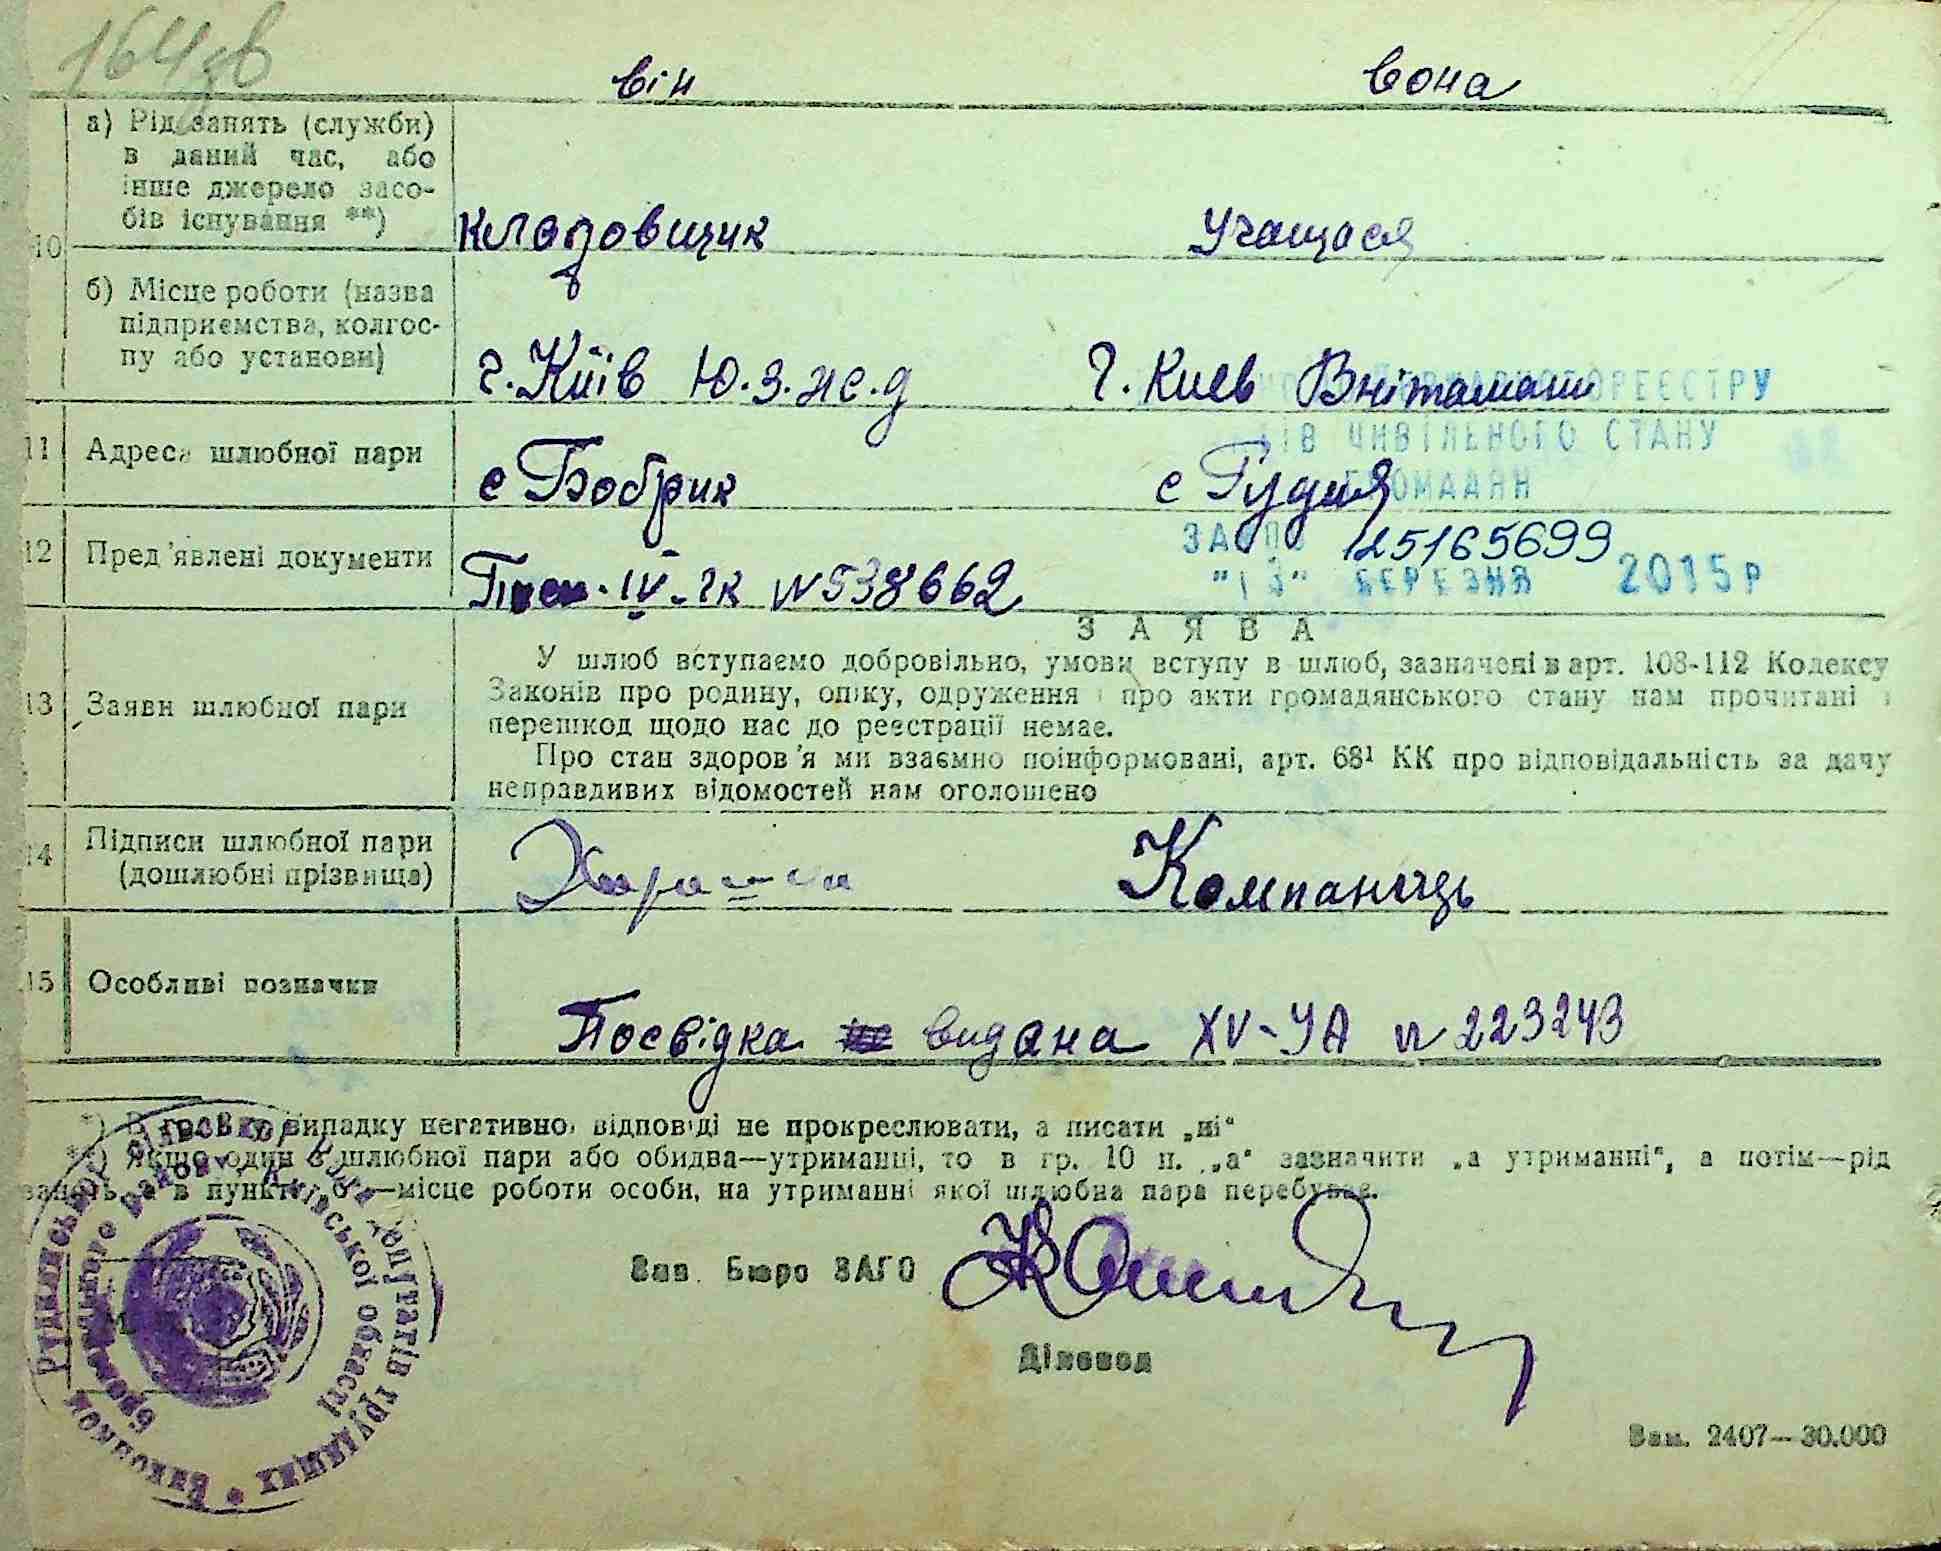 164зв
він вона
а) Рід занять (служби)
в даний час, або
інше джерело засо-
бів існування **)
кладовщик Учащаяся
10
б) Місце роботи (назва
підприємства, колгос-
пу або установи)
г. Київ Ю.З.ж.д г. Киев
ДЕРЖАВНОГО РЕЄСТРУ
АКТІВ ЦИВІЛЬНОГО СТАНУ
ГРОМАДЯН
11 Адреса шлюбної пари с Бобрик с Рудня
12 Пред'явлені документи IV-ГК N 538662
125165699
"13" БЕРЕЗНЯ 2015р
ЗАЯВА
13 Заяви шлюбної пари
У шлюб вступаємо добровільно, умови вступу в шлюб, зазначені в арт. 108-112 Кодексу
Законів про родину, опіку, одруження і про акти громадянського стану нам прочитані і
перешкод щодо нас до реєстрації немає.
Про стан здоров'я ми взаємно поінформовані, арт. 68¹ КК про відповідальність за дачу
неправдивих відомостей нам оголошено
14 Підписи шлюбної пари
(дошлюбні прізвища)
Компанець
15 Особливі позначки
Посвідка видана XV-УА N 223243
*) В гр. випадку негативної відповіді не прокреслювати, а писати „ні“
**) Якщо один з шлюбної пари або обидва—утриманці, то в гр. 10 п. „а“ зазначити „а утриманні“, а потім—рід
занять, а в пункті „б“—місце роботи особи, на утриманні якої шлюбна пара перебуває.
Виконком Рудницької сільської Ради депутатів трудящих
Броварського району Київської області
Зав. Бюро ЗАГС
Діловод
Зам. 2407—30.000